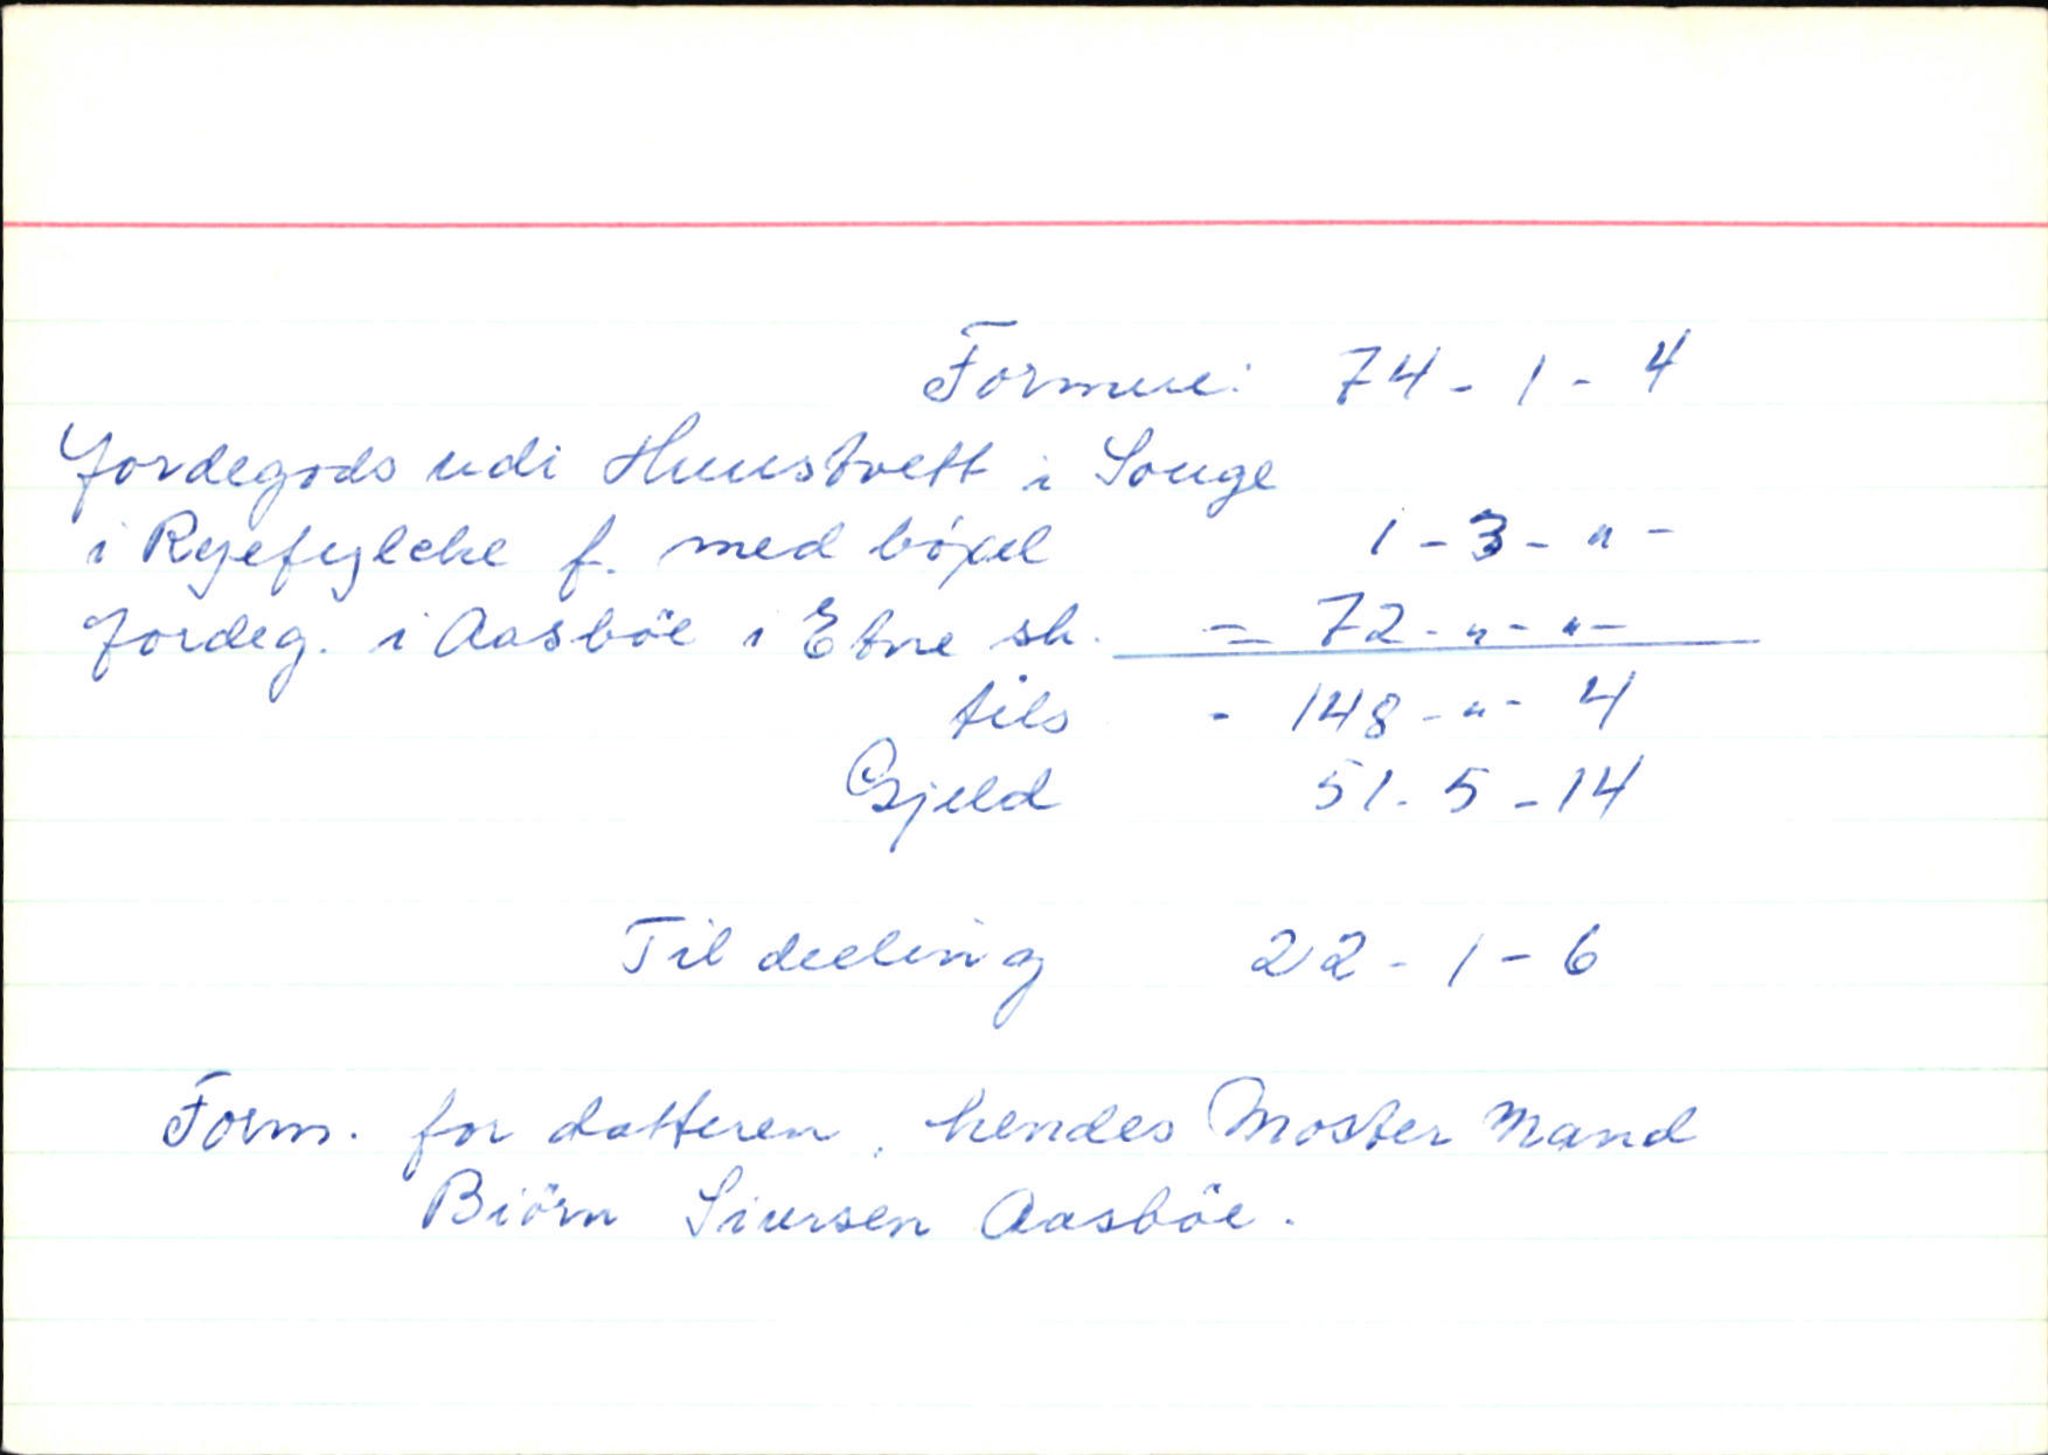 Formue: 74 - 1 - 4
Jordegods udi Huustvett i Souge
i Ryefylcke f. med böxel 1 - 3 - " -
Jordeg. i Aasböe i Etne sk. = 72 - " - " -
tils - 148 - " - 4
Gjeld 51 - 5 - 14
Til deeling 22 - 1 - 6
Form. for datteren, hendes Moster Mand
Biörn Siursen Aasböe.